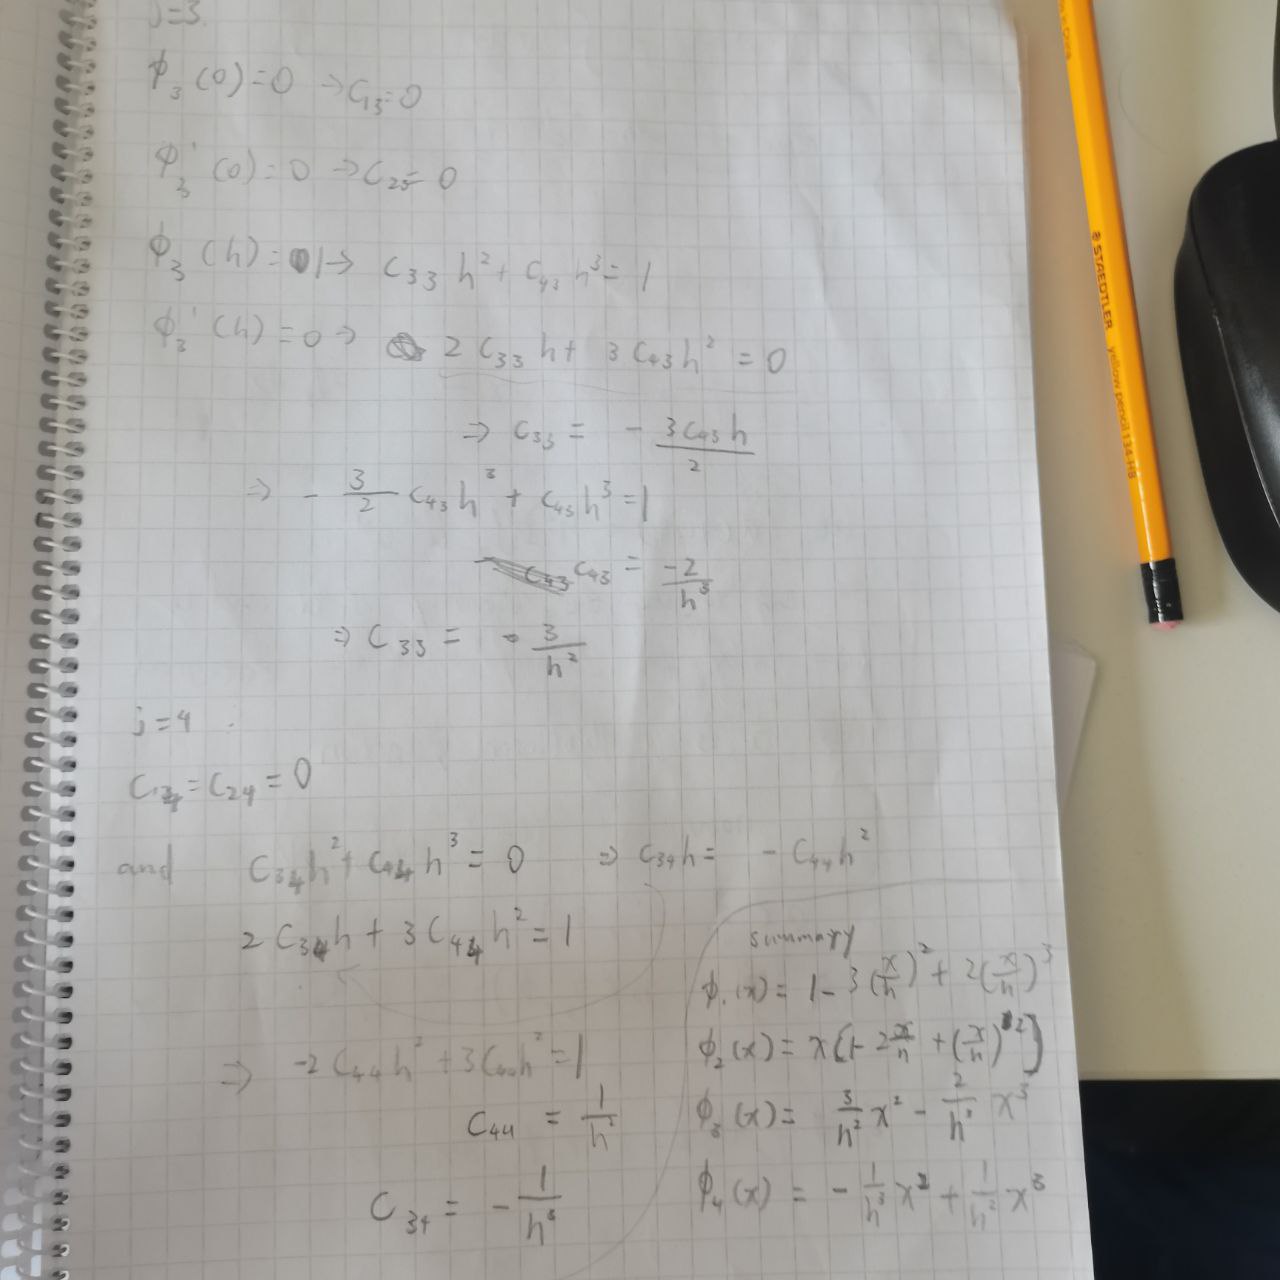 j=3.
ϕ₃(0)=0 → C₁₃=0
ϕ₃'(0)=0 → C₂₃=0
ϕ₃(h)=1 → C₃₃h²+C₄₃h³=1
ϕ₃'(h)=0 → 2C₃₃h+3C₄₃h²=0
⇒ C₃₃ = -3C₄₃h/2
⇒ -3/2 C₄₃h³ + C₄₃h³=1
C₄₃ = -2/h³
⇒ C₃₃ = 3/h²
j=4
C₁₄=C₂₄=0
and C₃₄h²+C₄₄h³=0 ⇒ C₃₄h = -C₄₄h²
2C₃₄h+3C₄₄h²=1
⇒ -2C₄₄h²+3C₄₄h²=1
C₄₄ = 1/h²
C₃₄ = -1/h³
summary
ϕ₁(x)=1-3(x/h)²+2(x/h)³
ϕ₂(x)=x(1-2x/h+(x/h)²)
ϕ₃(x)=3/h² x²-2/h³ x³
ϕ₄(x)=-1/h³ x²+1/h² x³
STAEDTLER yellow pencil 134-HB